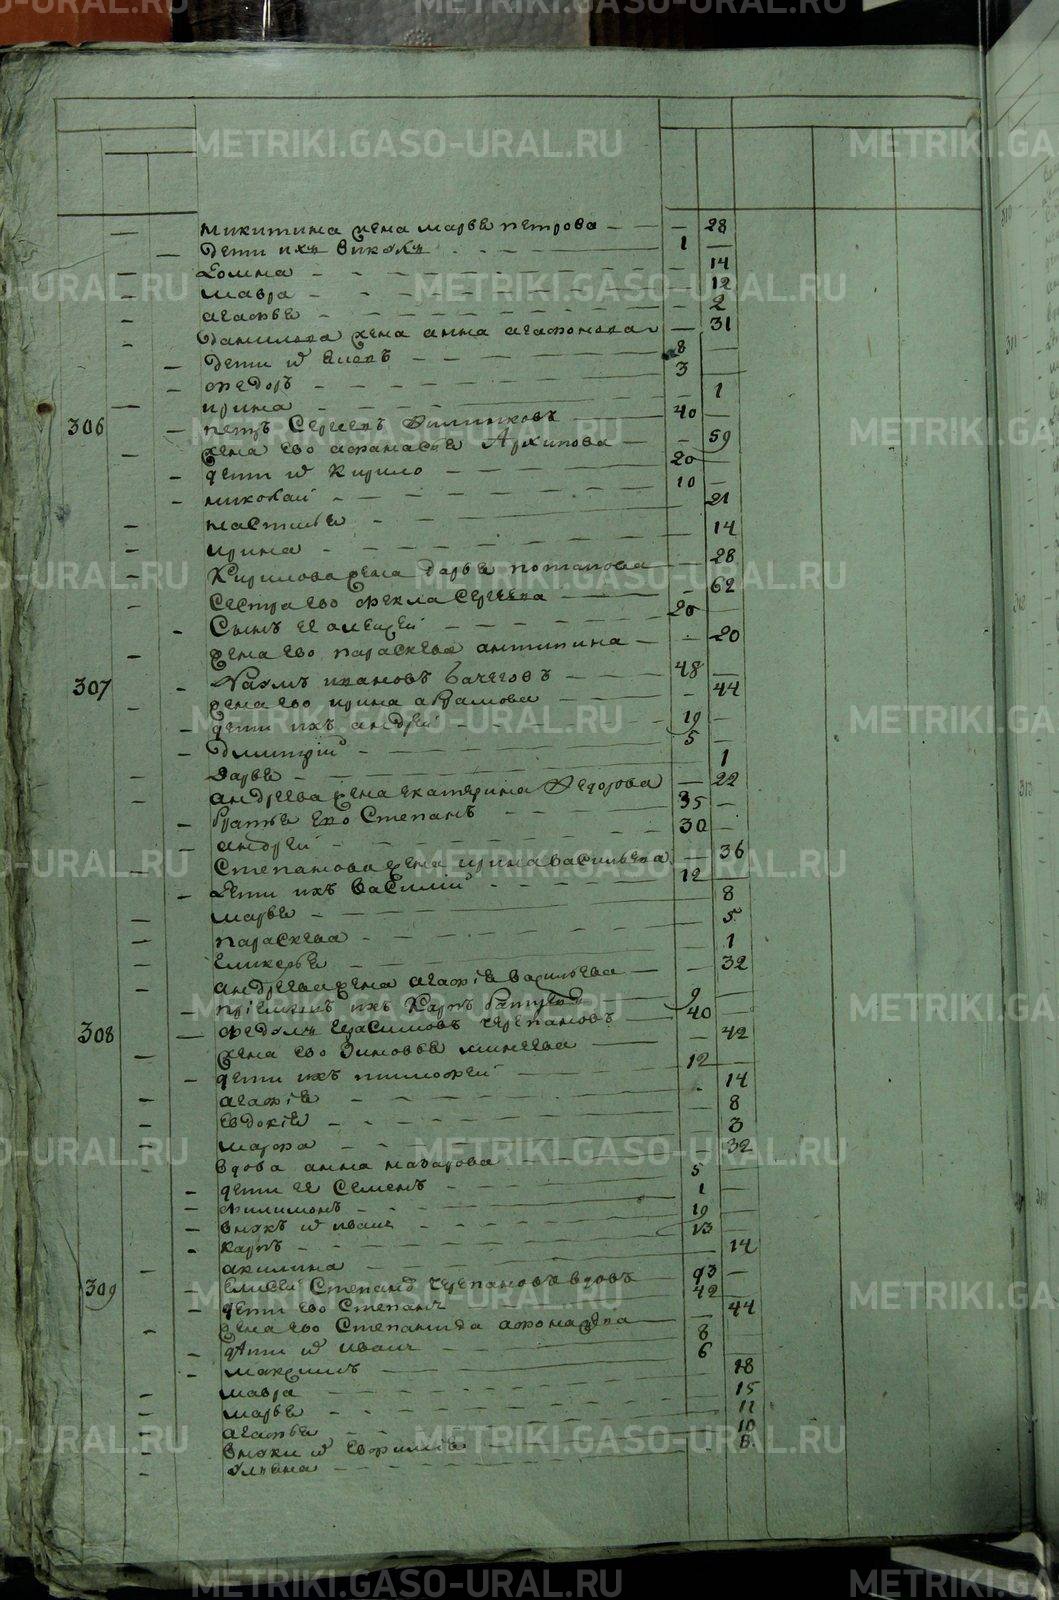 METRIKI.GASO-URAL.RU
микитина жена марѳе петрова — — 28
дети ихъ Викулъ 1 —
Домна — 14
мавра — 12
агафье — 2
данилова жена анна агафонова — 31
дети 8 —
федоръ 3 —
ирина — 1
306 петръ Сергеевъ 40 —
жена ево афанасье Архипова — 59
дети Кирило 20 —
николай 10 —
настасье 21
ирина — 14
Кирилова жена дарье потапова — 28
Сестра ево фекла Сергеева — 62
Сынъ ее алексей 20 —
жена ево параскева антипина — 20
307 Наумъ ивановъ 48 —
жена ево ирина абрамова — 44
дети ихъ андрей 19 —
Дмитрий 5 —
Дарье 1
андреева жена екатерина Федорова — 22
братье ево Степанъ 35 —
андрей 30 —
Степанова жена ирина васильева — 36
Дети ихъ василий 12
марье 8
параскева 5
гликерье 1
андреева жена агафие васильева — 32
приемышъ ихъ Карпъ 9 —
308 герасимовъ черепановъ 40 —
жена ево Зиновье минеева — 42
дети ихъ тимофей 12 —
агафие 14
евдокие — 8
марфа — 3
вдова анна назарова 32
дети ее Семенъ 5
филимонъ 1 —
внукъ иванъ 19 —
карпъ 13
акилина — 14
309 Елисей Степанъ черепановъ вдовъ 93 —
дети ево Степанъ 42 —
жена ево Степанида — 44
дети иванъ 8
максимъ 6
мавра — 18
марье — 15
агафье — 11
внуки евфимие 10
ульяна 8